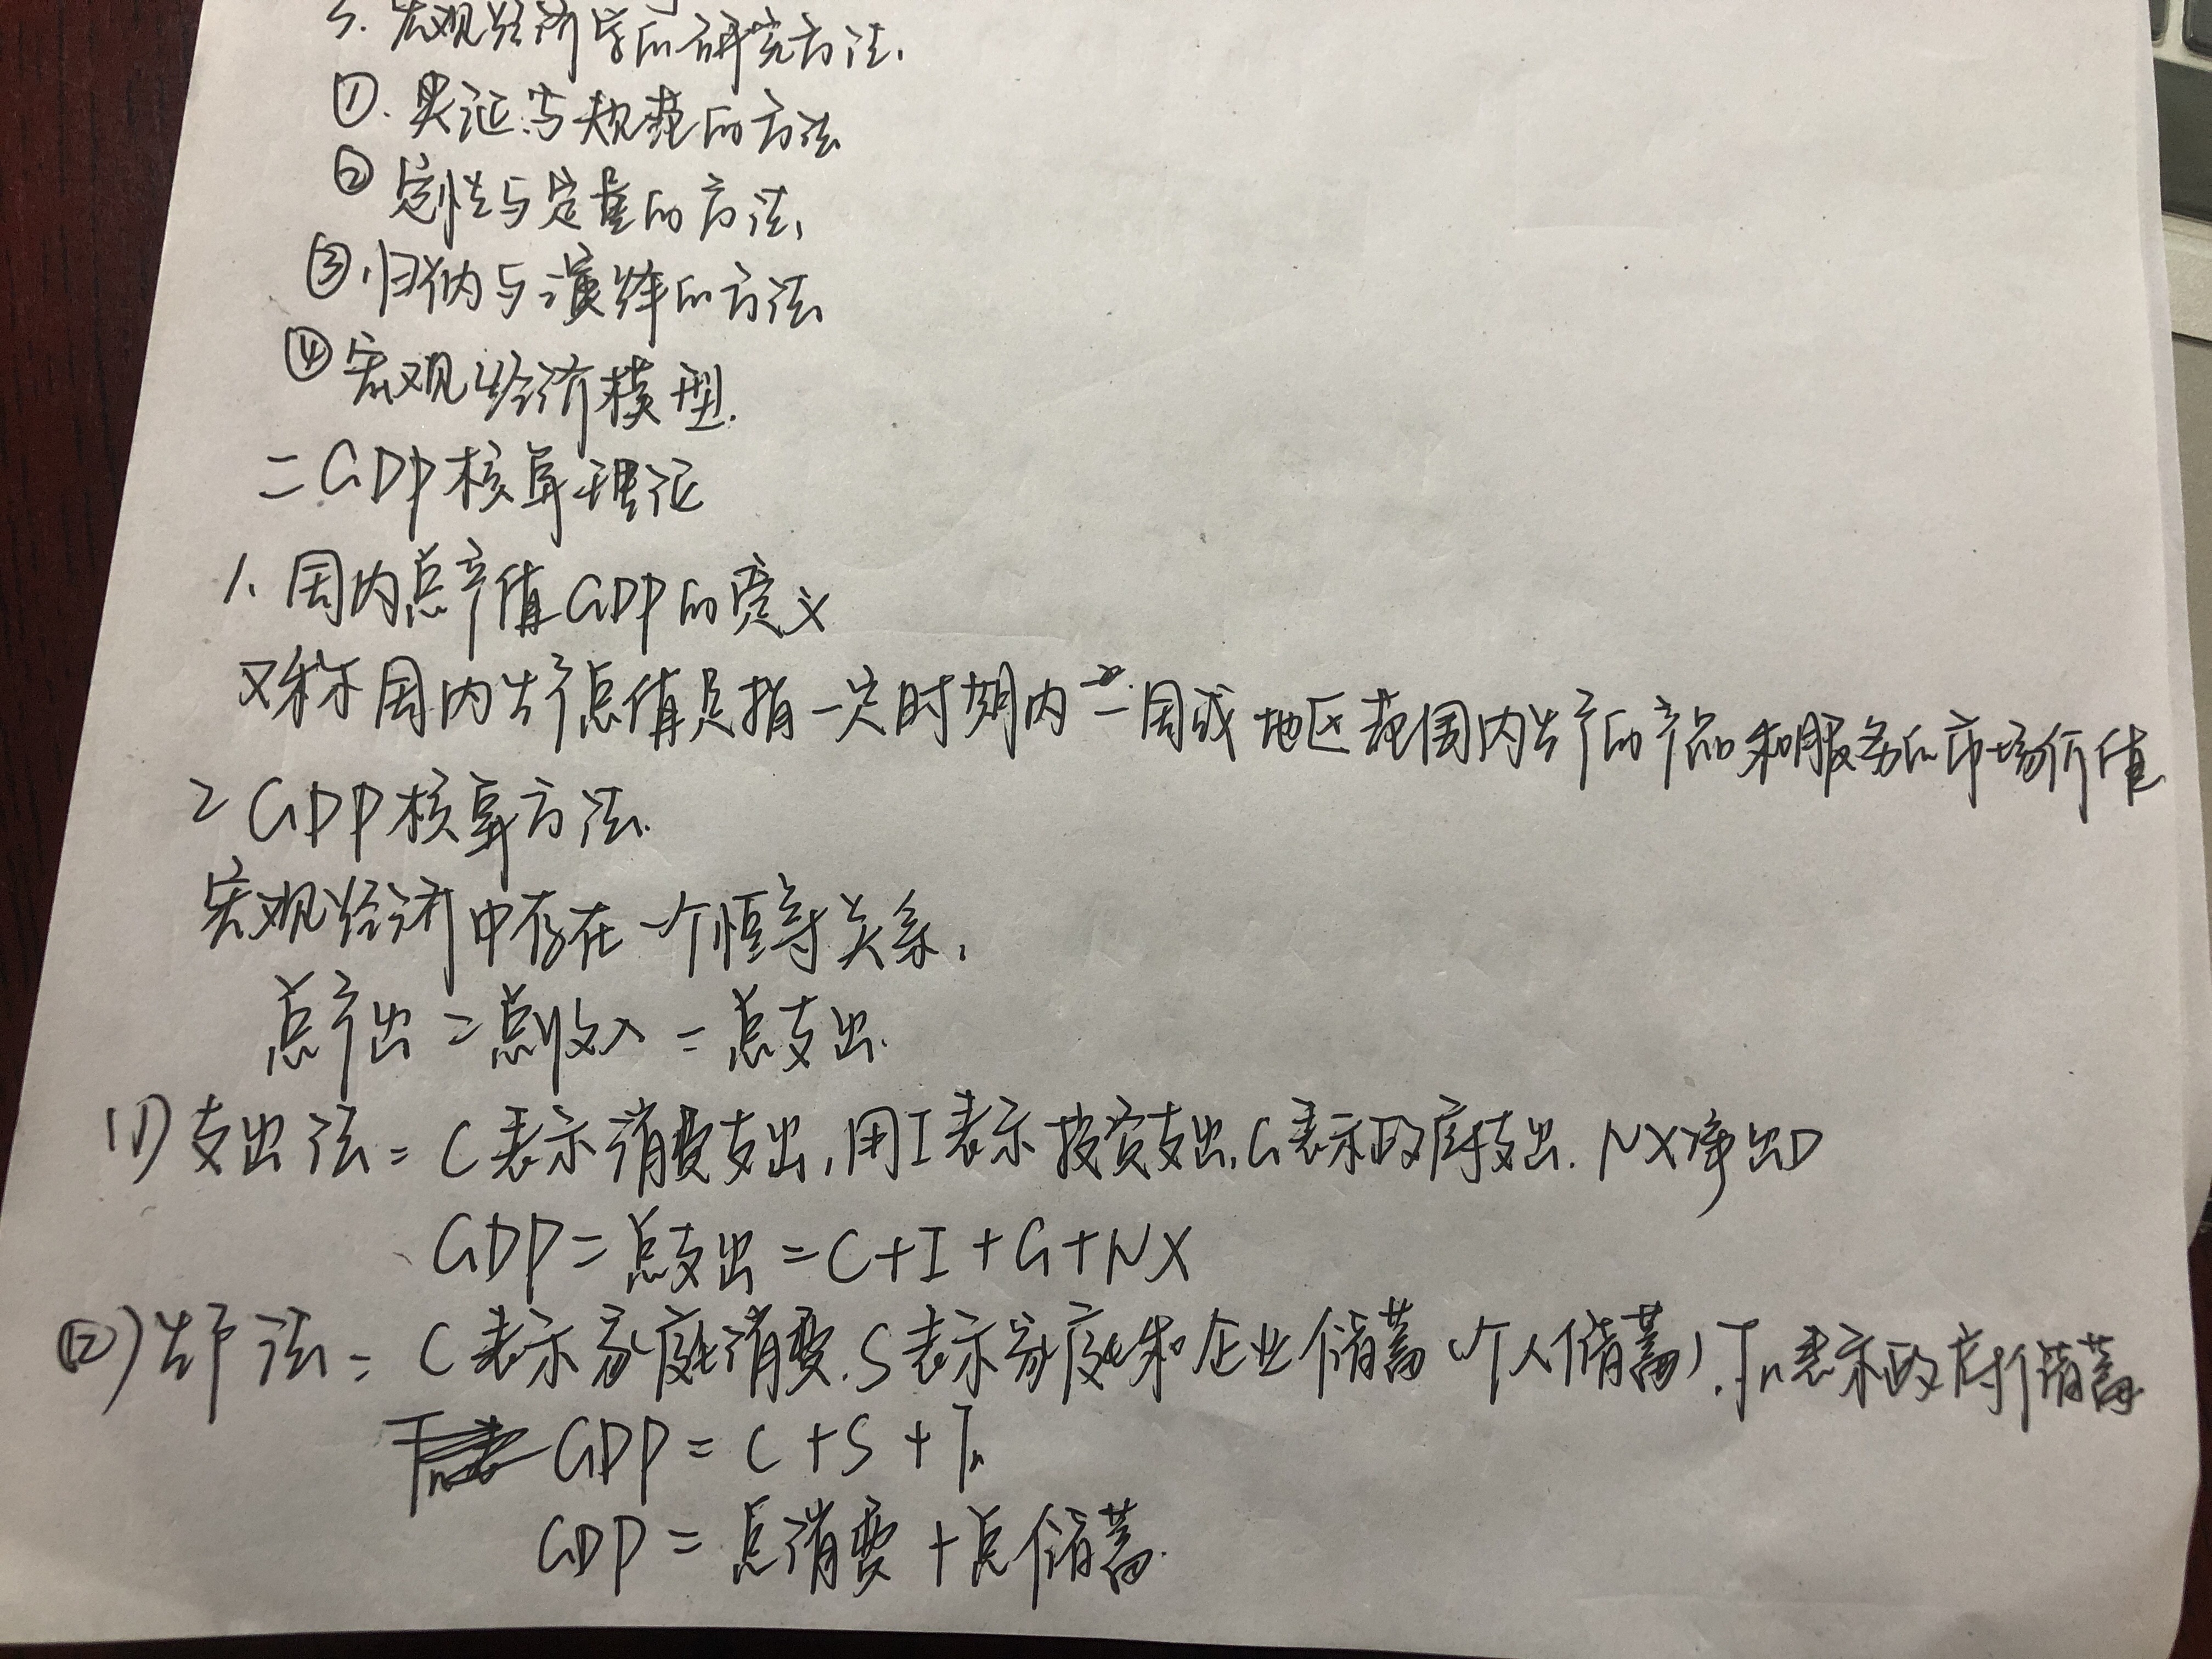 3. 宏观经济学的研究方法.
①. 实证与规范的方法
② 定性与定量的方法.
③. 归纳与演绎的方法
④ 宏观经济模型.
二 GDP 核算理论
1. 国内总产值GDP的定义
又称国内生产总值是指一定时期内一国或地区范围内生产的产品和服务的市场价值
2 GDP核算方法.
宏观经济中存在一个恒等关系.
总产出 = 总收入 = 总支出.
(1) 支出法: C表示消费支出, 用I表示投资支出, G表示政府支出. NX净出口
GDP = 总支出 = C+I+G+NX
(2) 生产法: C表示家庭消费. S表示家庭和企业储蓄(个人储蓄). Tn表示政府储蓄
GDP = C + S + Tn
GDP = 总消费 + 总储蓄.